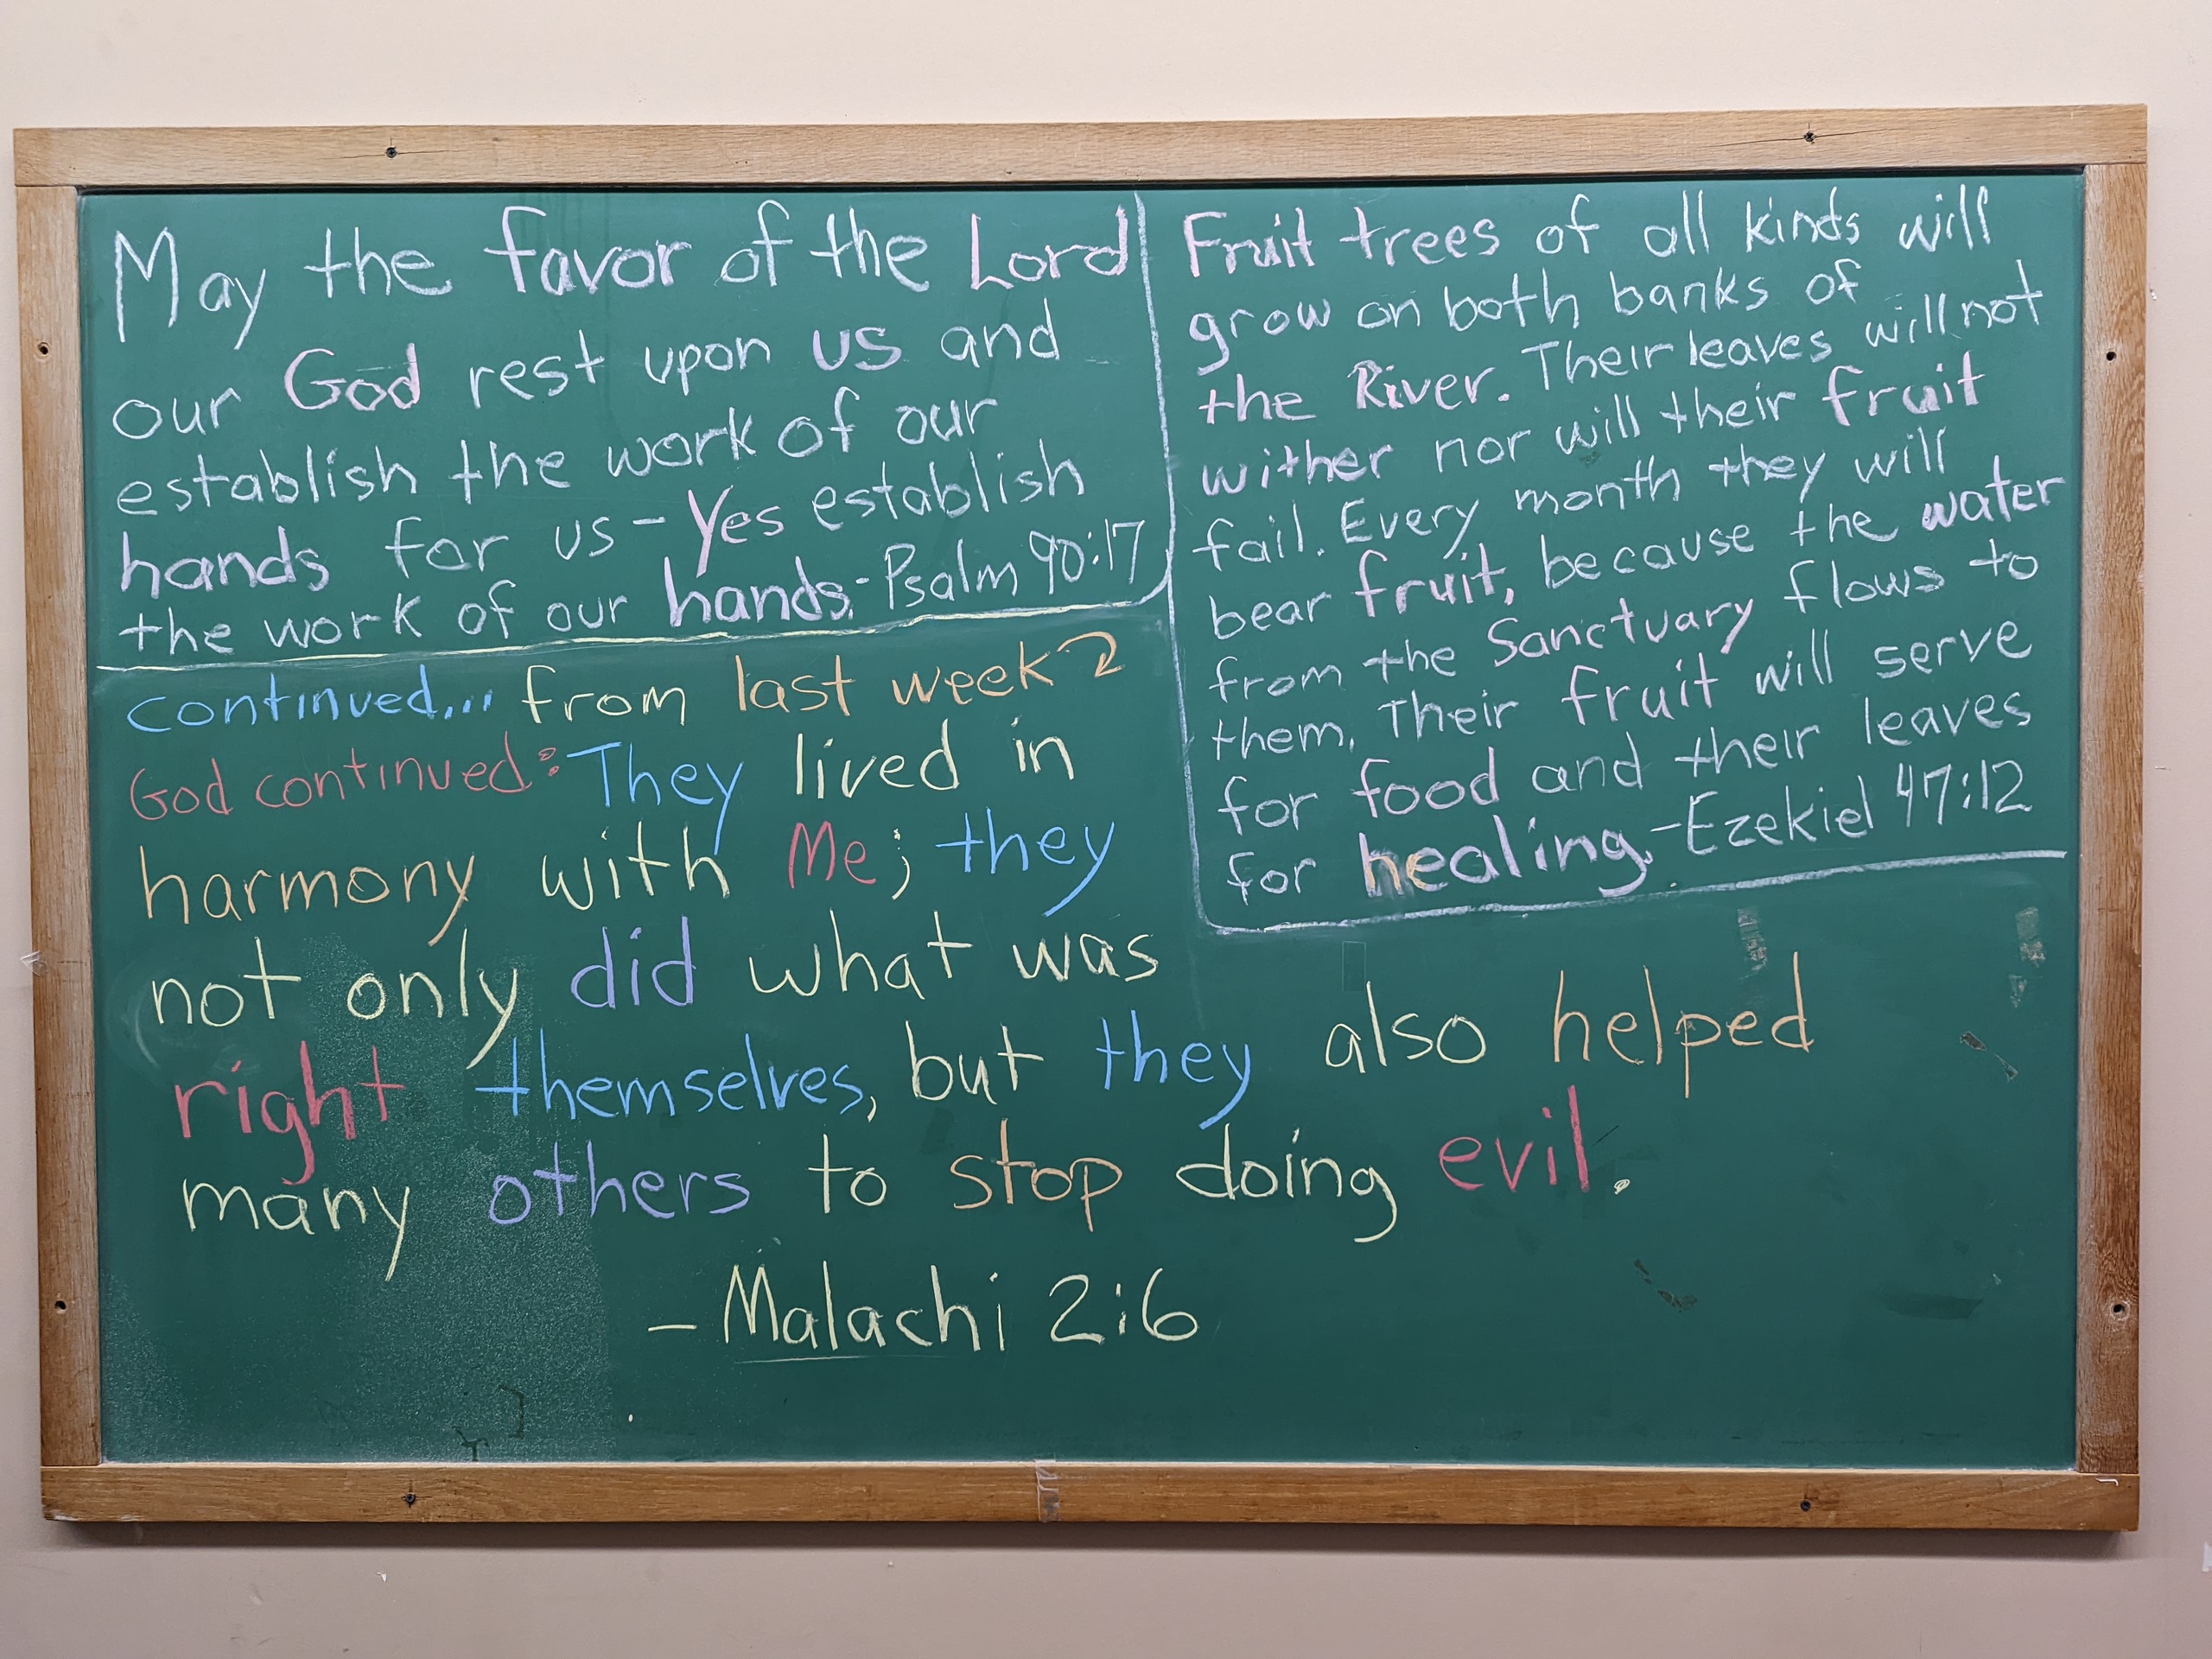 May the favor of the Lord
our God rest upon us and
establish the work of our
hands for us - Yes establish
the work of our hands. - Psalm 90:17
Fruit trees of all kinds will
grow on both banks of
the River. Their leaves will not
wither nor will their fruit
fail. Every month they will
bear fruit, because the water
from the Sanctuary flows to
them. Their fruit will serve
for food and their leaves
for healing. - Ezekiel 47:12
continued... from last week
God continued: They lived in
harmony with Me; they
not only did what was
right themselves, but they also helped
many others to stop doing evil.
- Malachi 2:6